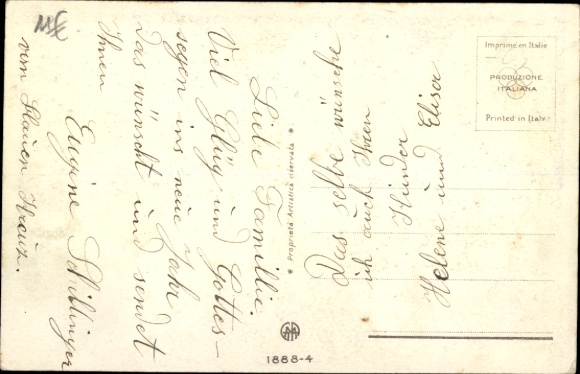 Liebe Familie
Viel Glüg und Gottes-
segen ins neue Jahr
Das wünscht und sendet
Ihnen
Eugine Schillinger
vom blauen Kreuz.
Das selbe wünsche
ich auch Ihren
Kinder
Helene und Elisa
* Proprietà Artistica riservata *
Imprimé en Italie
PRODUZIONE
ITALIANA
Printed in Italy
1888-4